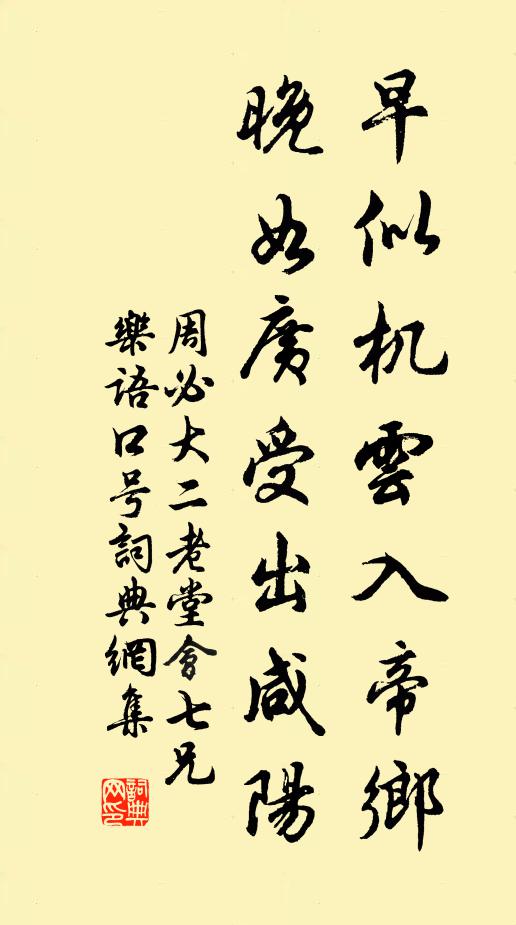 早似机雲入帝鄉
晚如廣受出咸陽
周必大二老堂會七兄
樂語口号詞典網集
詞典网印